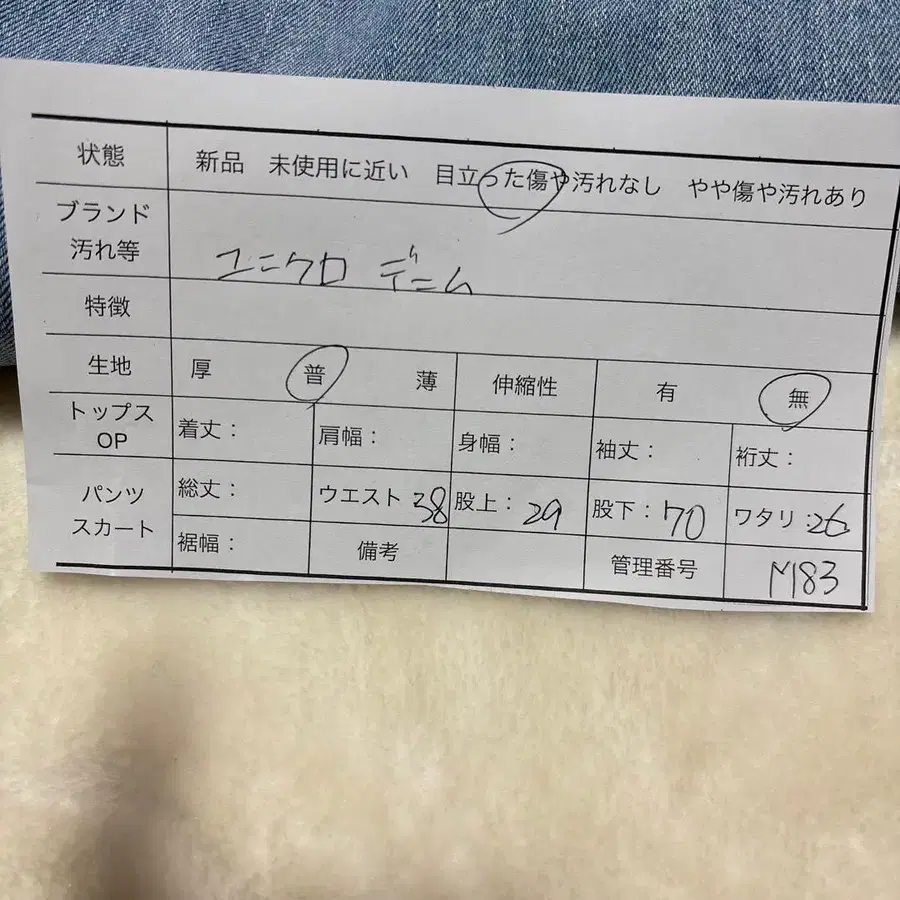 状態 新品 未使用に近い 目立った傷や汚れなし やや傷や汚れあり
ブランド
汚れ等 ユニクロ デニム
特徴
生地 厚 普 薄 伸縮性 有 無
トップス
OP 着丈: 肩幅: 身幅: 袖丈: 裄丈:
パンツ
スカート 総丈: ウエスト 38 股上: 29 股下: 70 ワタリ: 26
裾幅: 備考 管理番号 M83